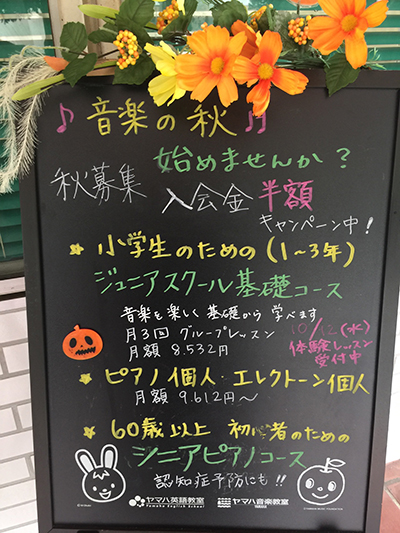 ♪音楽の秋♫
始めませんか？
秋募集 入会金半額
キャンペーン中！
★小学生のための(1～3年)
ジュニアスクール基礎コース
音楽を楽しく基礎から学べます
月3回 グループレッスン
月額 8.532円
10/12(水)
体験レッスン
受付中
★ピアノ個人・エレクトーン個人
月額 9.612円～
★60歳以上 初心者のための
シニアピアノコース
認知症予防にも!!
ヤマハ英語教室
Yamaha English School
ヤマハ音楽教室
YAMAHA